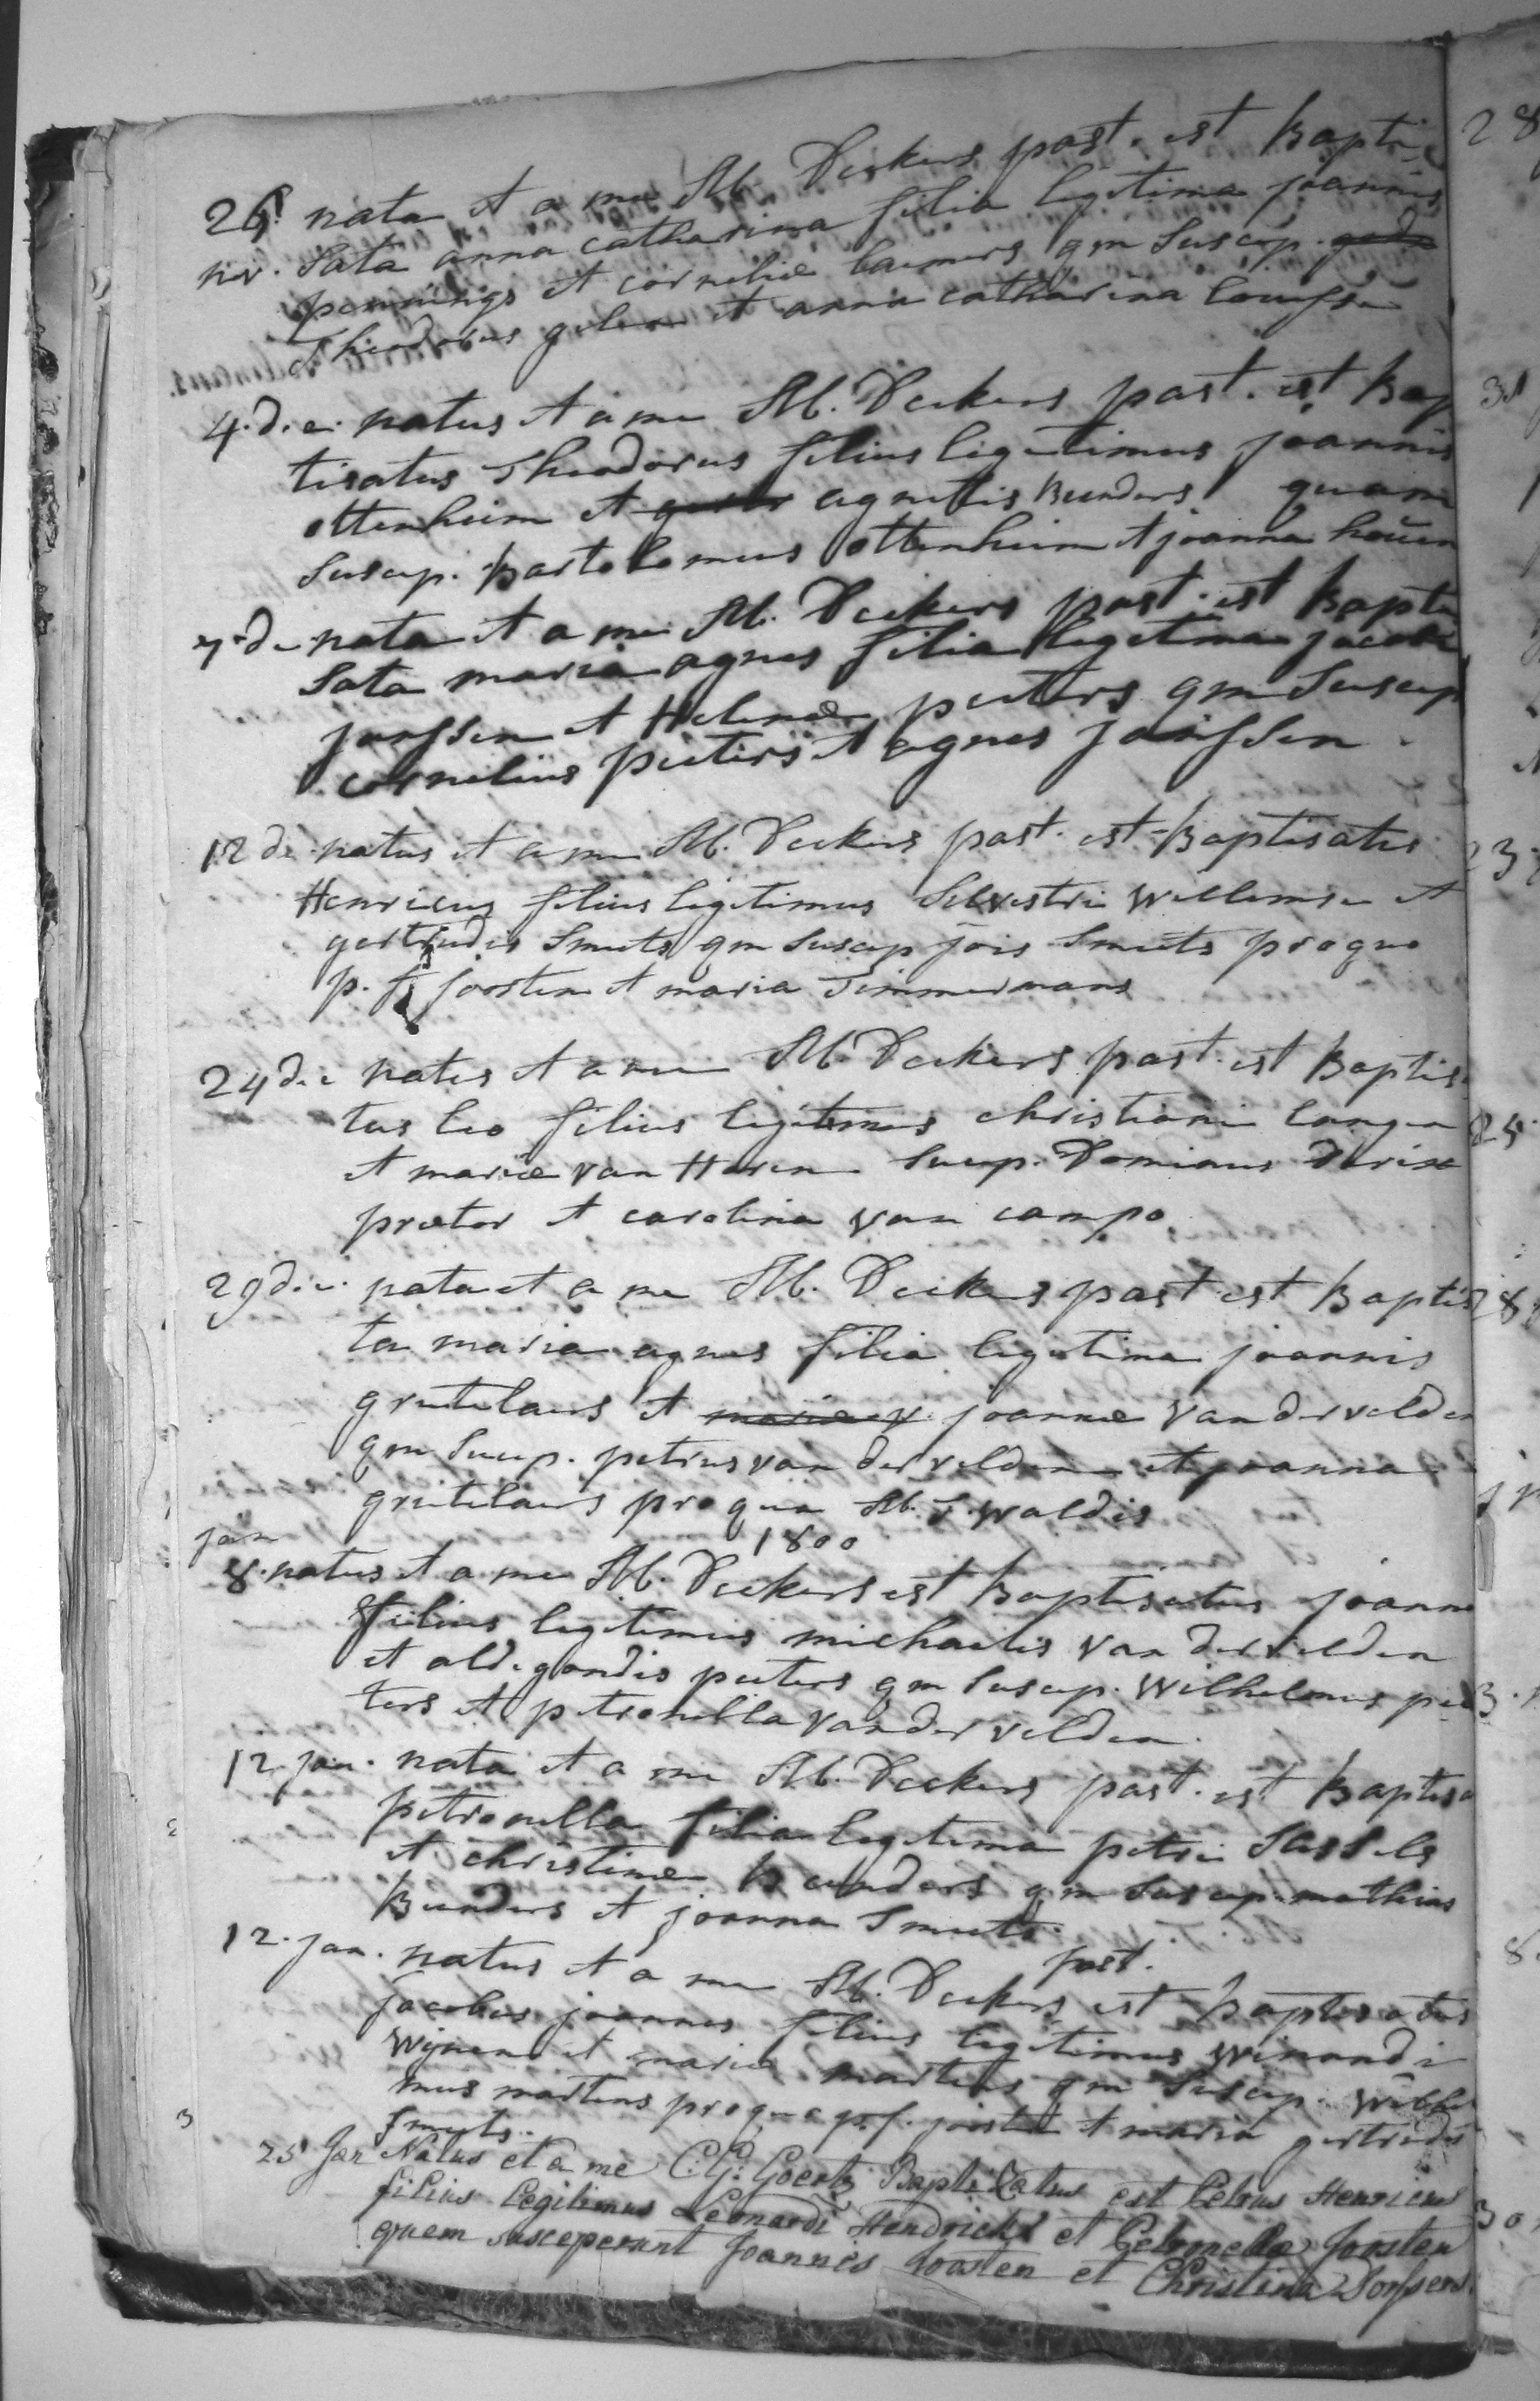 26. nata et a me M. Deckers past. est bapti
nov. sata anna catharina filia legitima joannis
pennings et cornelie laemers qm suscep.
Theodorus gelen et anna catharina
4. de. natus et a me M. Deckers past. est bap
tisatus Theodorus filius legitimus joannis
ottenheim et agnetis Beunders quem
suscep. bartolomeus ottenheim et joanna
7 de nata et a me M. Deckers past. est bapti
sata maria agnes filia legitima jacobi
janssen et Helenae peeters qm suscep
cornelius peeters et agnes janssen
12 de natus et a me M. Deckers past. est baptisatus
Henricus filius legitimus Silvestri willemsen et
gertrudis Smeets qm suscep jois Smeets pro quo
p. f. joosten et maria Timmermans
24 de natus et a me M. Deckers past. est baptis
tus leo filius legitimus christiani langen
et mariae van Haren Sucep. Dominus Derix
praetor et carolina van campo
29 de. nata et a me M. Deckers past est baptis
ta maria agnes filia legitima joannis
greutelaers et joannae van der velden
qm Sucep. petrus van der velden et joanna
greutelaers pro qua M. T. waldis
1800
jan
8. natus et a me M. Deckers est baptisatus joannes
filius legitimus michaelis van der velden
et aldegondis peeters qm suscep. wilhelmus pee
ters et petronilla van der velden.
12 jan. nata et a me M. Deckers past. est baptisa
petronilla filia legitima petri
et christinae Beunders qm suscep. mathias
Beunders et joanna Smeets.
12. jan. natus et a me M. Deckers past. est baptisatus
jacobus joannes filius legitimus winandi
wijnen et mariae martens qm suscep. wilhel
mus martens pro quo p. f. joosten et maria gertrudis
Smeets.
25 Jan Natus et a me C. G. Goertz Baptizatus est Petrus Henricus
filius Legitimus Leonardi Hendrickx et Petronella Joosten
quem susceperunt Joannes Joosten et Christina